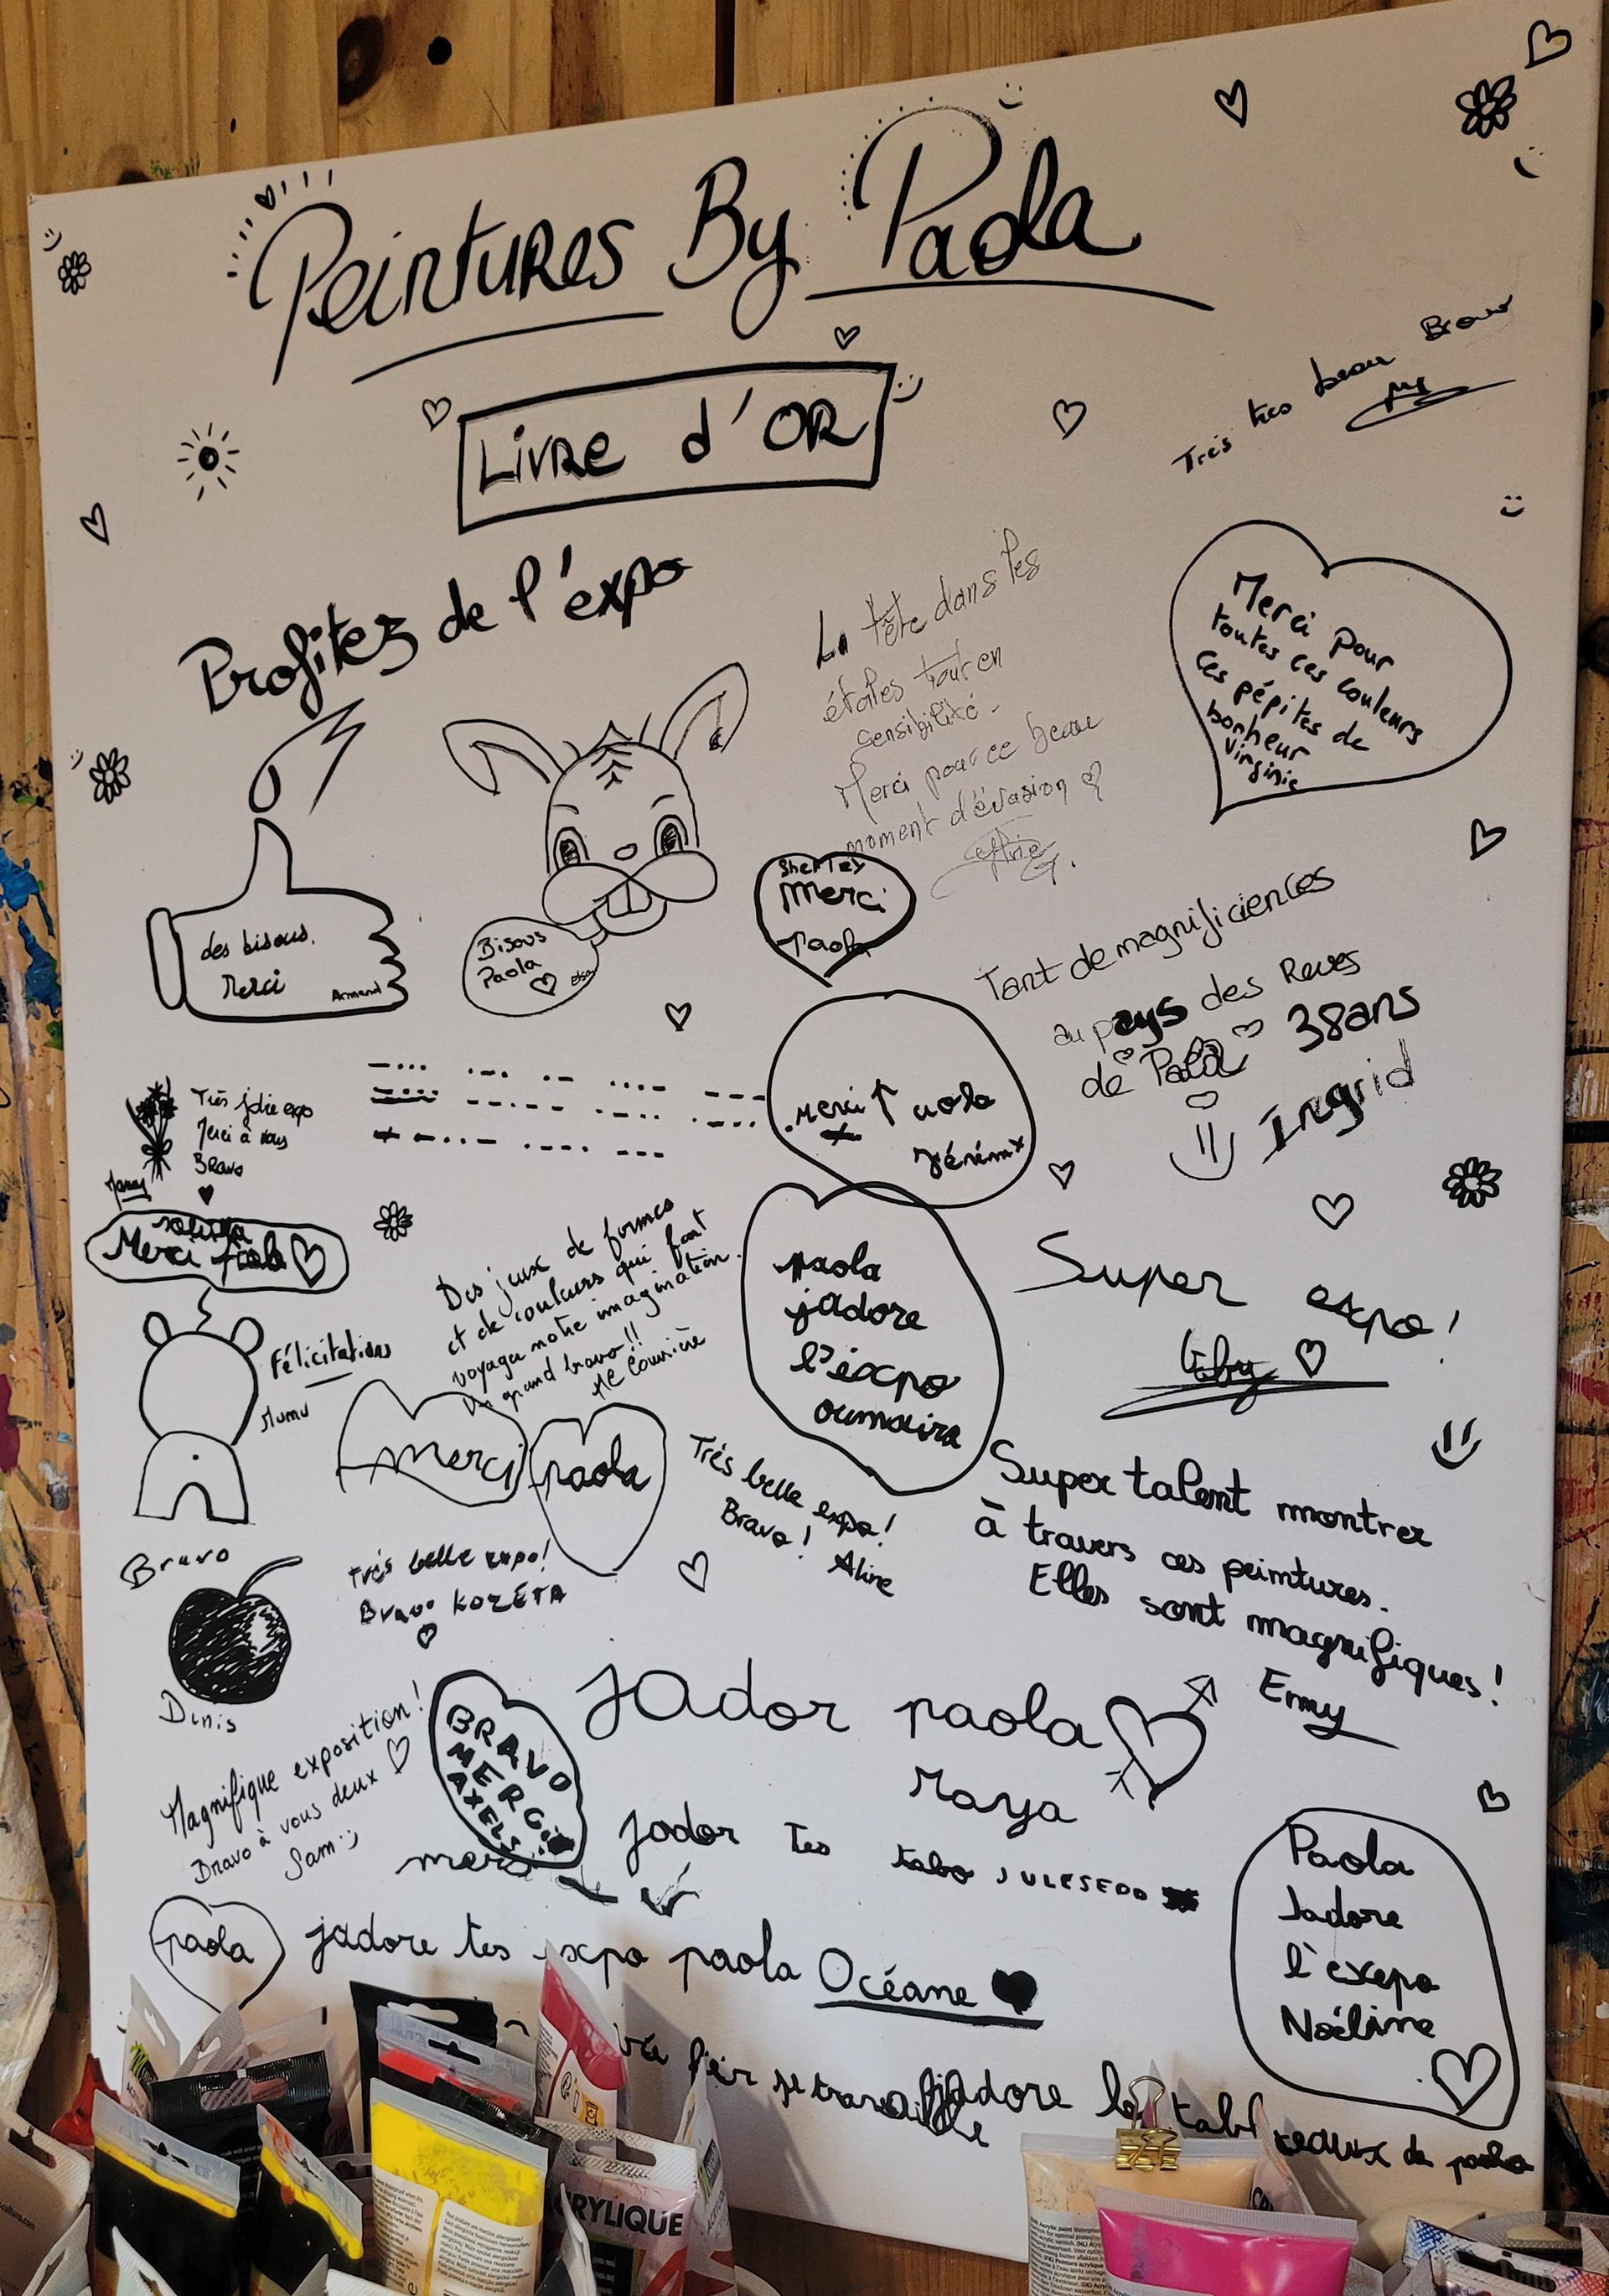 Peintures By Paola
Livre d'OR
Très très beau Bravo
Profitez de l'expo
La tête dans les
étoiles tout en
sensibilité -
Merci pour ce beau
moment d'évasion
Merci pour
toutes ces couleurs
Ces pépites de
bonheur
Virginie
des bisous.
Merci
Armand
Bisous
Paola
elsa
Sherley
Merci
Paola
Tant de magnificiences
au pays des Reves
de Paola
38ans
Ingrid
Très jolie expo
Merci à vous
Bravo
Merci Paola
Félicitations
Mumu
merci Paola
Jérémx
Des jeux de formes
et de couleurs qui font
voyager notre imagination.
Un grand bravo !!
paola
jadore
l'éxpo
oumaira
Super expo !
merci
paola
Très belle expo !
Bravo ! Aline
Super talent montrer
à travers ces peintures.
Elles sont magnifiques !
Emy
Bravo
Denis
très belle expo !
Bravo KOZETA
Magnifique exposition !
Bravo à vous deux
Sam :)
BRAVO
MERCi
AXELS
jador paola
Maya
jador tes tabo JULESEDO
merci
paola
jadore tes expo paola Océane
Paola
Jadore
l'exepo
Noéline
jadore
teaux de paola
ACRYLIQUE